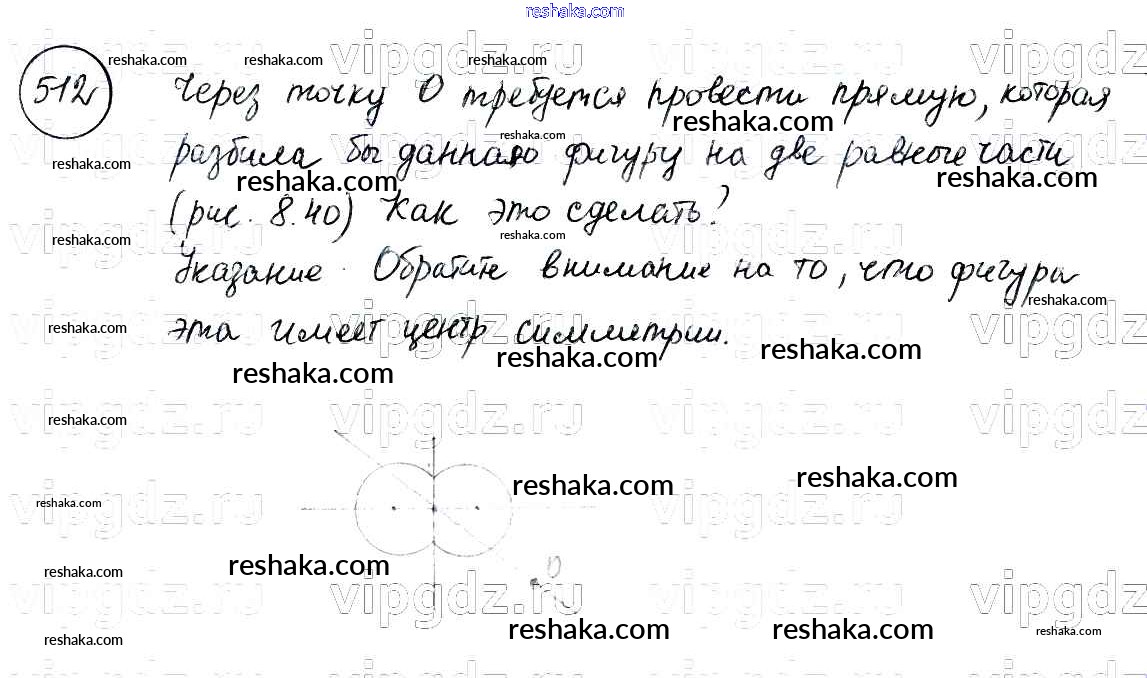 reshaka.com
512
Через точку О требуется провести прямую, которая
разбила бы данную фигуру на две равные части
(рис. 8.40) Как это сделать?
Указание. Обратите внимание на то, что фигура
эта имеет центр симметрии.
O
vipgdz.ru
reshaka.com